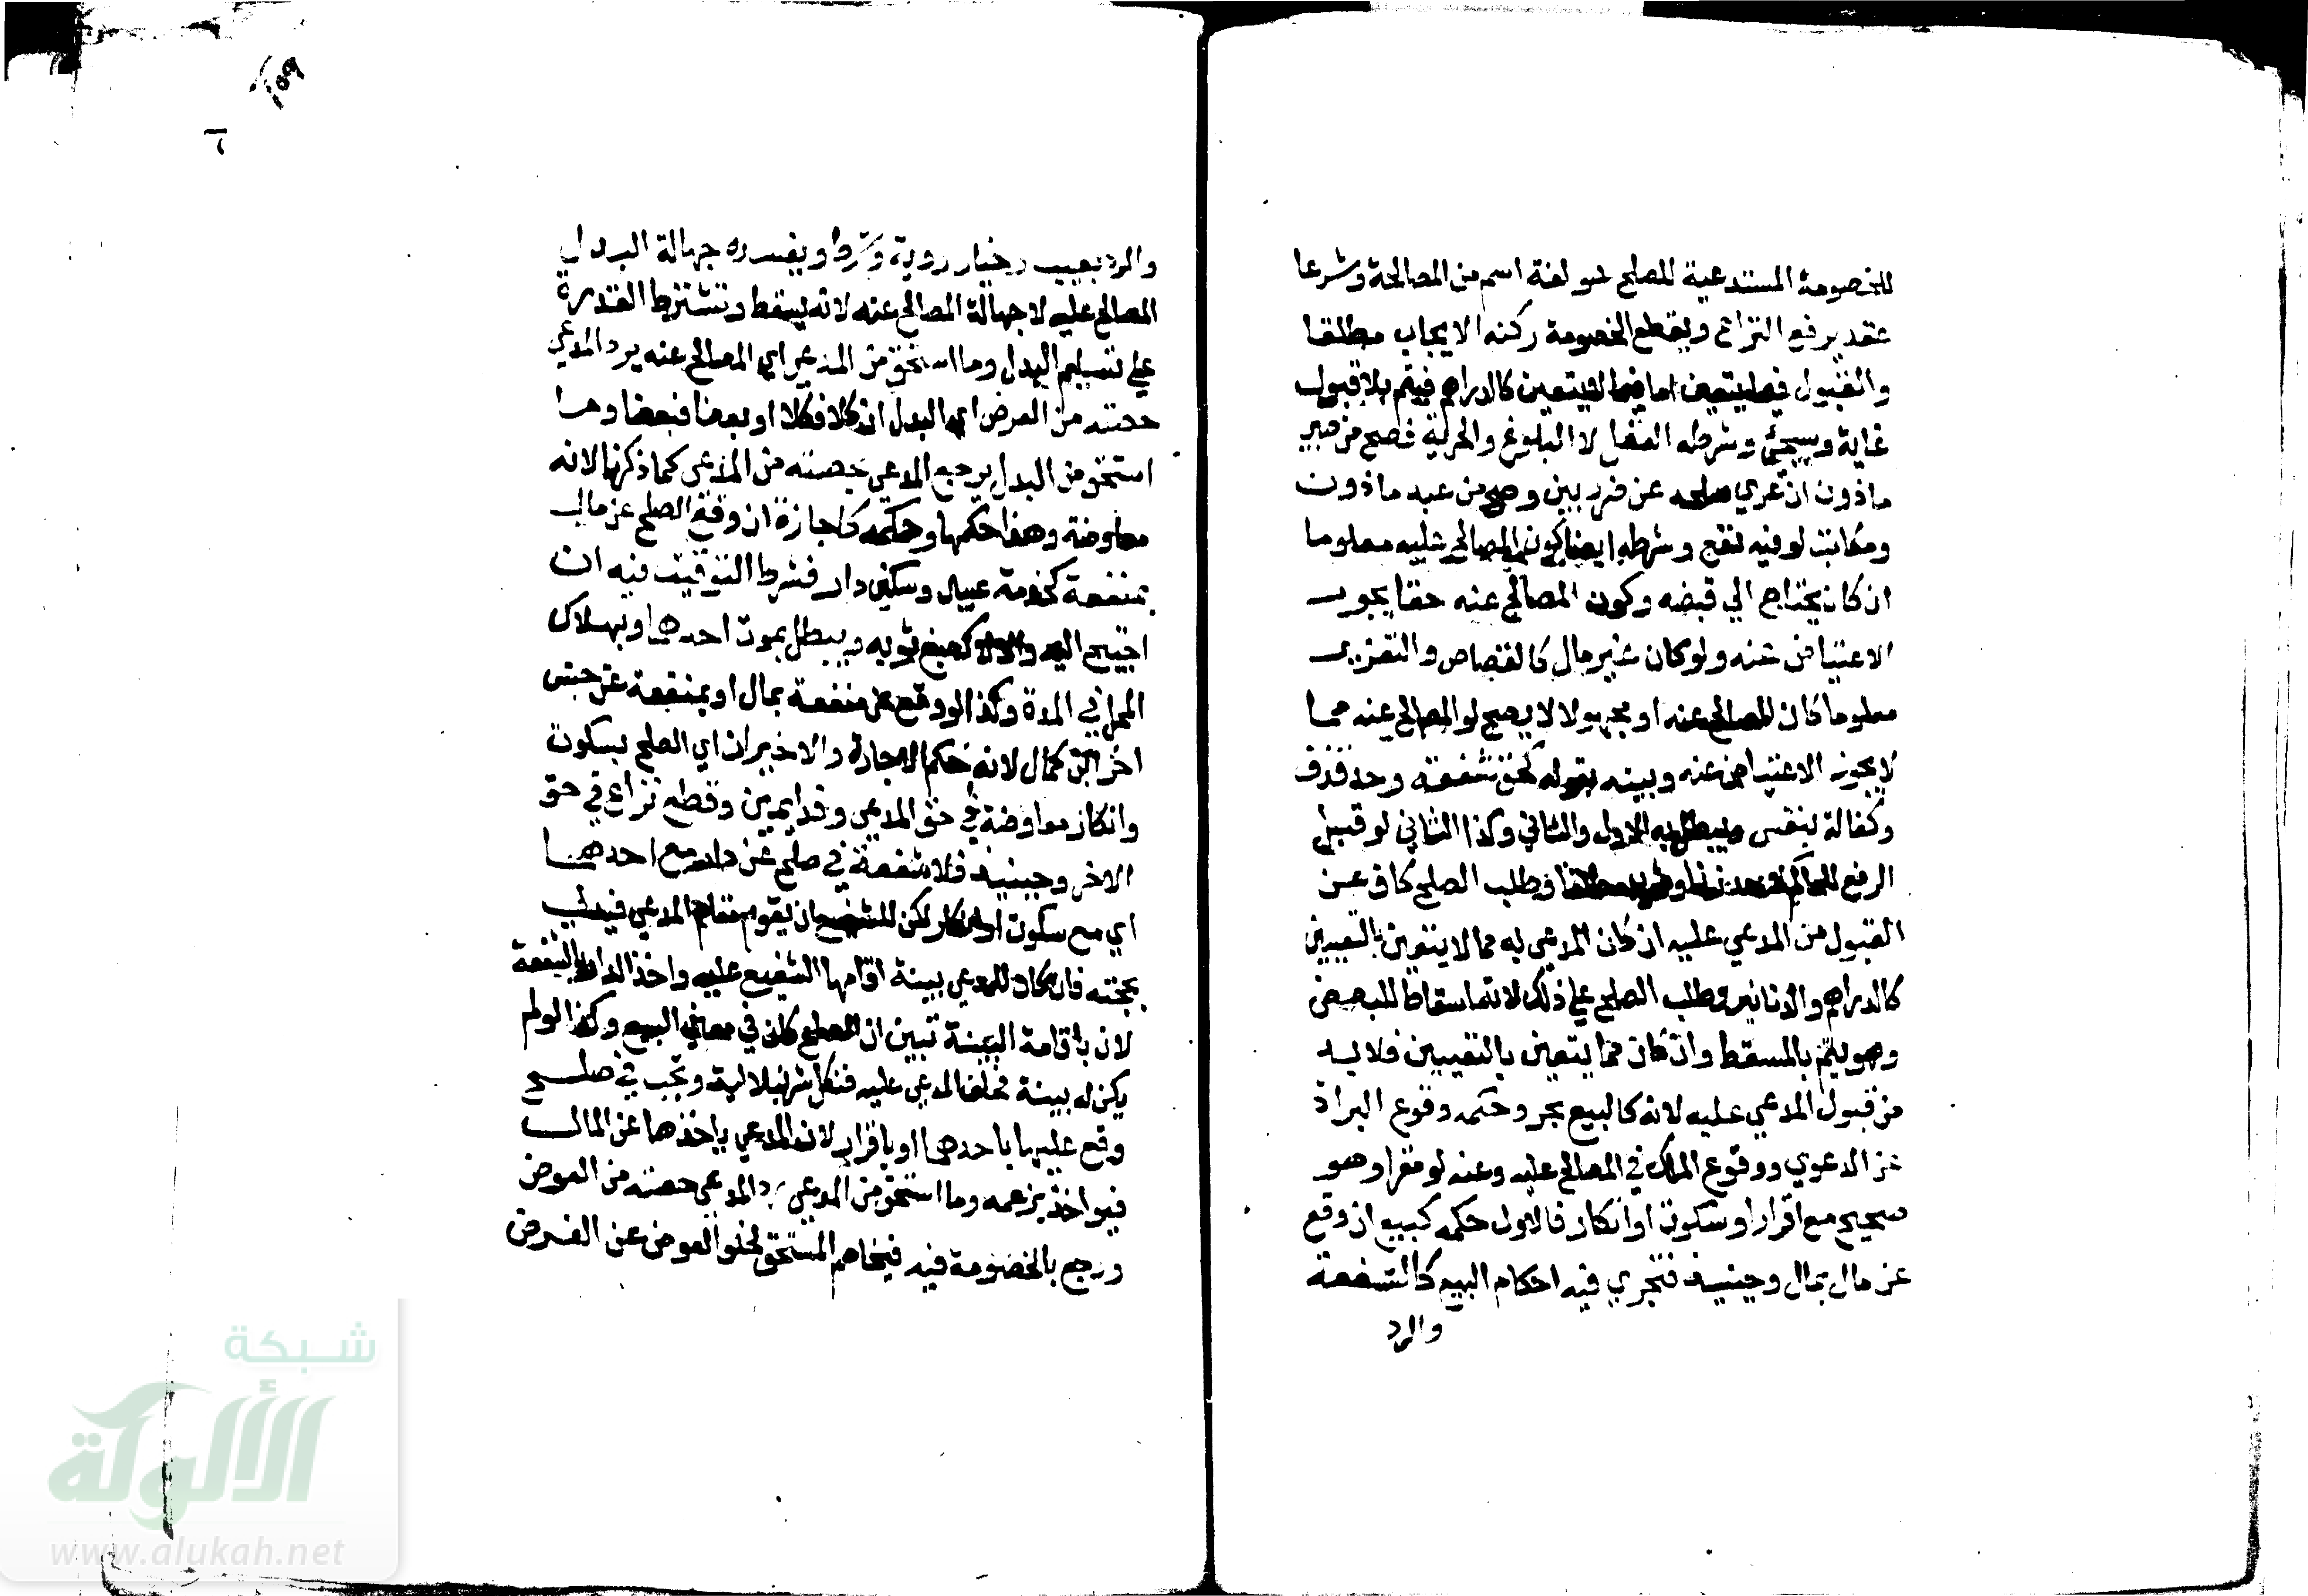 للخصومة المستدعية للصلح هو لغة اسم من المصالحة وشرعا
عقد يرفع النزاع ويقطع الخصومة ركنه الايجاب مطلقا
والقبول فيما يتعين اما فيما لا يتعين كالدراهم فيتم بلا قبول
عناية وسيجئ وشرطه العقل لا البلوغ والحرية فصح من صبي
ماذون ان عري صلحه عن ضرر بين وصح من عبد ماذون
ومكاتب لو فيه نفع وشرطه ايضا كون المصالح عليه معلوما
ان كان يحتاج الي قبضه وكون المصالح عنه حقا يجوز
الاعتياض عنه ولو كان غير مال كالقصاص والتعزير
معلوما كان المصالح عنه او مجهولا لا يصح لو المصالح عنه مما
لا يجوز الاعتياض عنه وبينه بقوله كحق شفعة وحد قذف
وكفالة بنفس ويبطل به الاول والثاني وكذا الثاني لو قبيل
الرفع للحاكم وطلب الصلح كاف عن
القبول من المدعي عليه ان كان المدعي به مما لا يتعين بالتعيين
كالدراهم والدنانير وطلب الصلح علي ذلك لانه اسقاط للبعض
وهو يتم بالمسقط وان كان مما يتعين بالتعيين فلا بد
من قبول المدعي عليه لانه كالبيع بحر وحكمه وقوع البراة
عن الدعوي ووقوع الملك في المصالح عليه وعنه لو مقرا وهو
صحيح مع اقرار او سكوت او انكار فالاول حكمه كبيع ان وقع
عن مال بمال وحينيذ فتجري فيه احكام البيع كالشفعة
والرد
١٥٩
٦
والرد بعيب وخيار روية وشرط ويفسده جهالة البدل
المصالح عليه لا جهالة المصالح عنه لانه يسقط وتشترط القدرة
علي تسليم البدل وما استحق من المدعي اي المصالح عنه يرد المدعي
حصته من العوض اي البدل ان كلا فكلا او بعضا فبعضا وما
استحق من البدل يرجع المدعي بحصته من المدعي كما ذكرنا لانه
معاوضة وهذا حكمها وحكمه كاجازة ان وقع الصلح عن مال
بمنفعة كخدمة عبد وسكني دار فشرط التوقيت فيه ان
احتيج اليه والا لا كصبغ ثوبه ويبطل بموت احدهما وبهلاك
المحل في المدة وكذا لو وقع عن منفعة بمال او بمنفعة عن جنس
اخر ابن كمال لانه حكم الاجارة والاخيران اي الصلح بسكوت
وانكار معاوضة في حق المدعي وفدا يمين وقطع نزاع في حق
الاخر وحينيذ فلا شفعة في صلح عن دار مع احدهما
اي مع سكوت او انكار لكن للشفيع ان يقوم مقام المدعي فيدلي
بحجته فان كان للمدعي بينة اقامها الشفيع عليه واخذ الدار بالشفعة
لان باقامة البينة تبين ان الصلح كان في معني البيع وكذا لو لم
يكن له بينة فحلف المدعي عليه فنكل شرنبلالية وتجب في صلح
وقع عليها باحدهما او باقرار لان المدعي ياخذها عن المال
فيواخذ بزعمه وما استحق من المدعي رد المدعي حصته من العوض
ورجع بالخصومة فيه فيخاصم المستحق لخلو العوض عن الغرض
شبكة
الألوكة
www.alukah.net